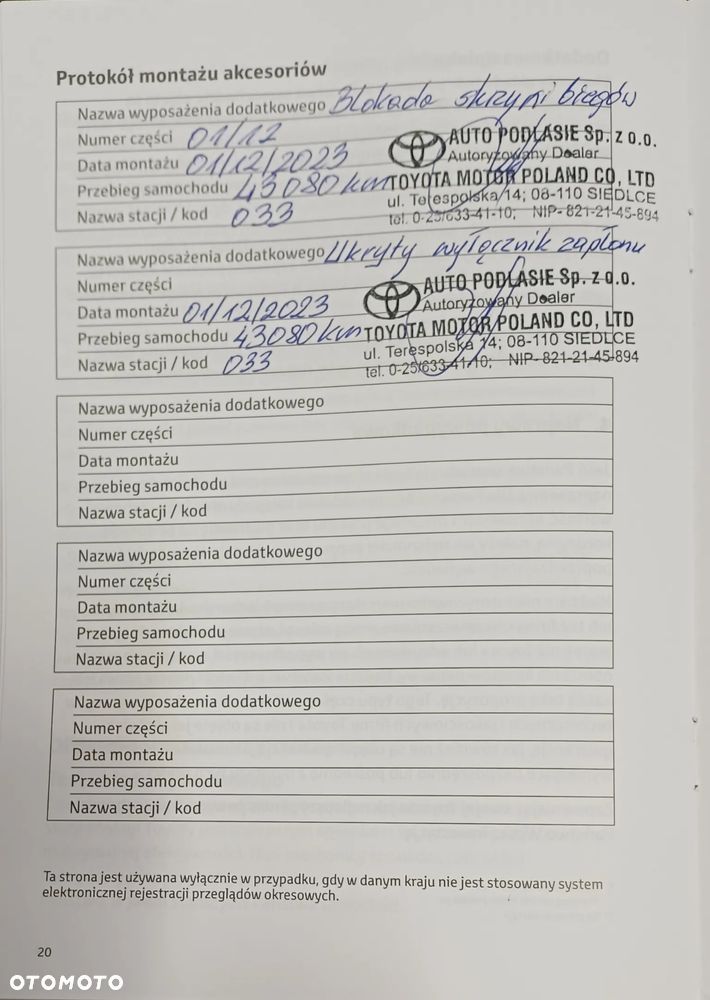 Protokół montażu akcesoriów
Nazwa wyposażenia dodatkowego Blokada skrzyni biegów
Numer części 01/12
AUTO PODLASIE Sp. z o.o.
Autoryzowany Dealer
Data montażu 01/12/2023
TOYOTA MOTOR POLAND CO, LTD
Przebieg samochodu 43080 km
ul. Terespolska 14; 08-110 SIEDLCE
Nazwa stacji / kod 033
tel. 0-25/633-41-10; NIP- 821-21-45-894
Nazwa wyposażenia dodatkowego Ukryty wyłącznik zapłonu
Numer części
AUTO PODLASIE Sp. z o.o.
Autoryzowany Dealer
Data montażu 01/12/2023
TOYOTA MOTOR POLAND CO, LTD
Przebieg samochodu 43080 km
ul. Terespolska 14; 08-110 SIEDLCE
Nazwa stacji / kod 033
tel. 0-25/633-41-10; NIP- 821-21-45-894
Nazwa wyposażenia dodatkowego
Numer części
Data montażu
Przebieg samochodu
Nazwa stacji / kod
Nazwa wyposażenia dodatkowego
Numer części
Data montażu
Przebieg samochodu
Nazwa stacji / kod
Nazwa wyposażenia dodatkowego
Numer części
Data montażu
Przebieg samochodu
Nazwa stacji / kod
Ta strona jest używana wyłącznie w przypadku, gdy w danym kraju nie jest stosowany system
elektronicznej rejestracji przeglądów okresowych.
20
OTOMOTO